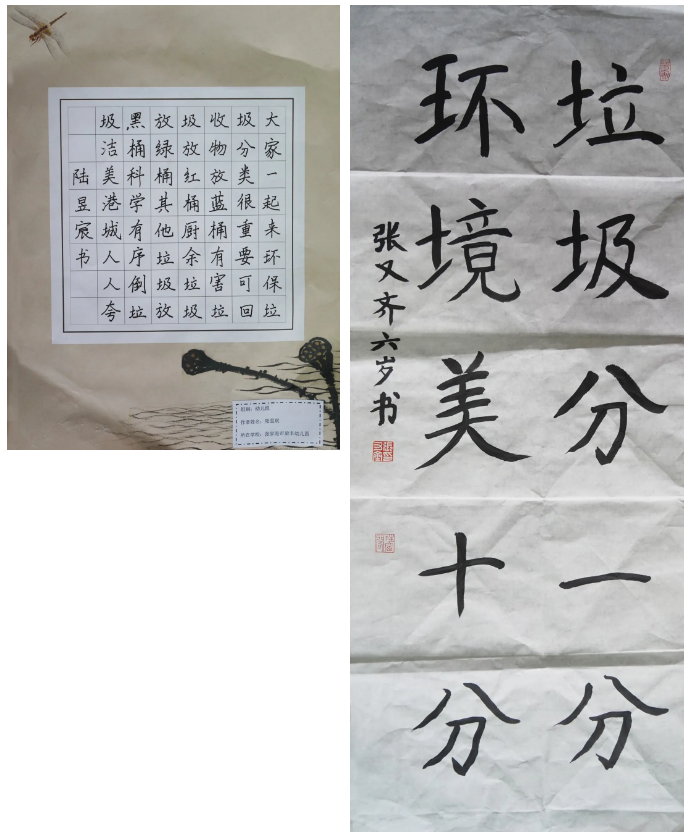 大家一起来环保垃
圾分类很重要可回
收物放蓝桶有害垃
圾放红桶厨余垃圾
放绿桶其他垃圾放
黑桶科学有序倒垃
圾洁美港城人人夸
陆昱宸书
组别：幼儿组
作者姓名：陆昱宸
垃圾分一分
环境美十分
张又齐六岁书